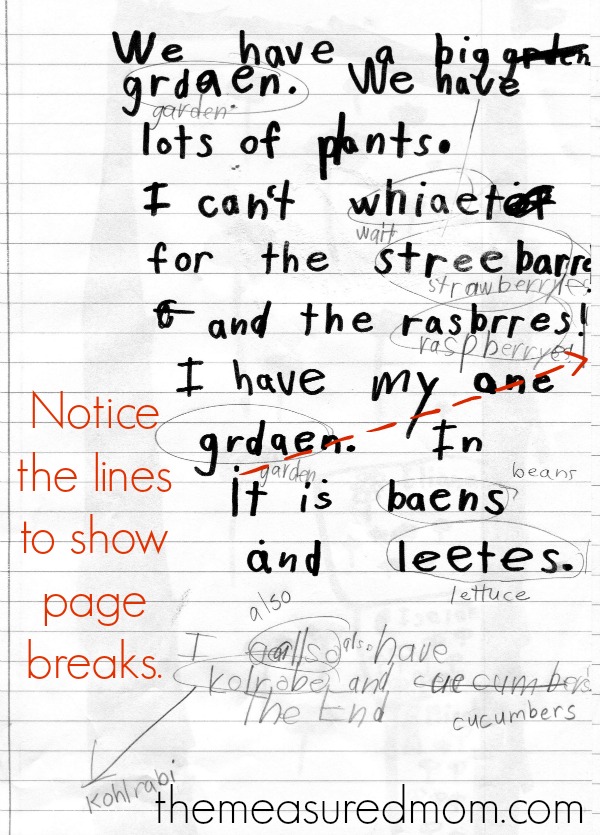 We have a big grden
grdaen. We have
garden.
lots of plants.
I can't whiaet
wait
for the streebarre
strawberryes
and the rasbrres!
raspberryes
I have my one
grdaen. In
garden
beans
it is baens
and leetes.
lettuce
also
I allso also have
kolrabe and cuecumbers
The End
cucumbers
kohlrabi
Notice
the lines
to show
page
breaks.
themeasuredmom.com